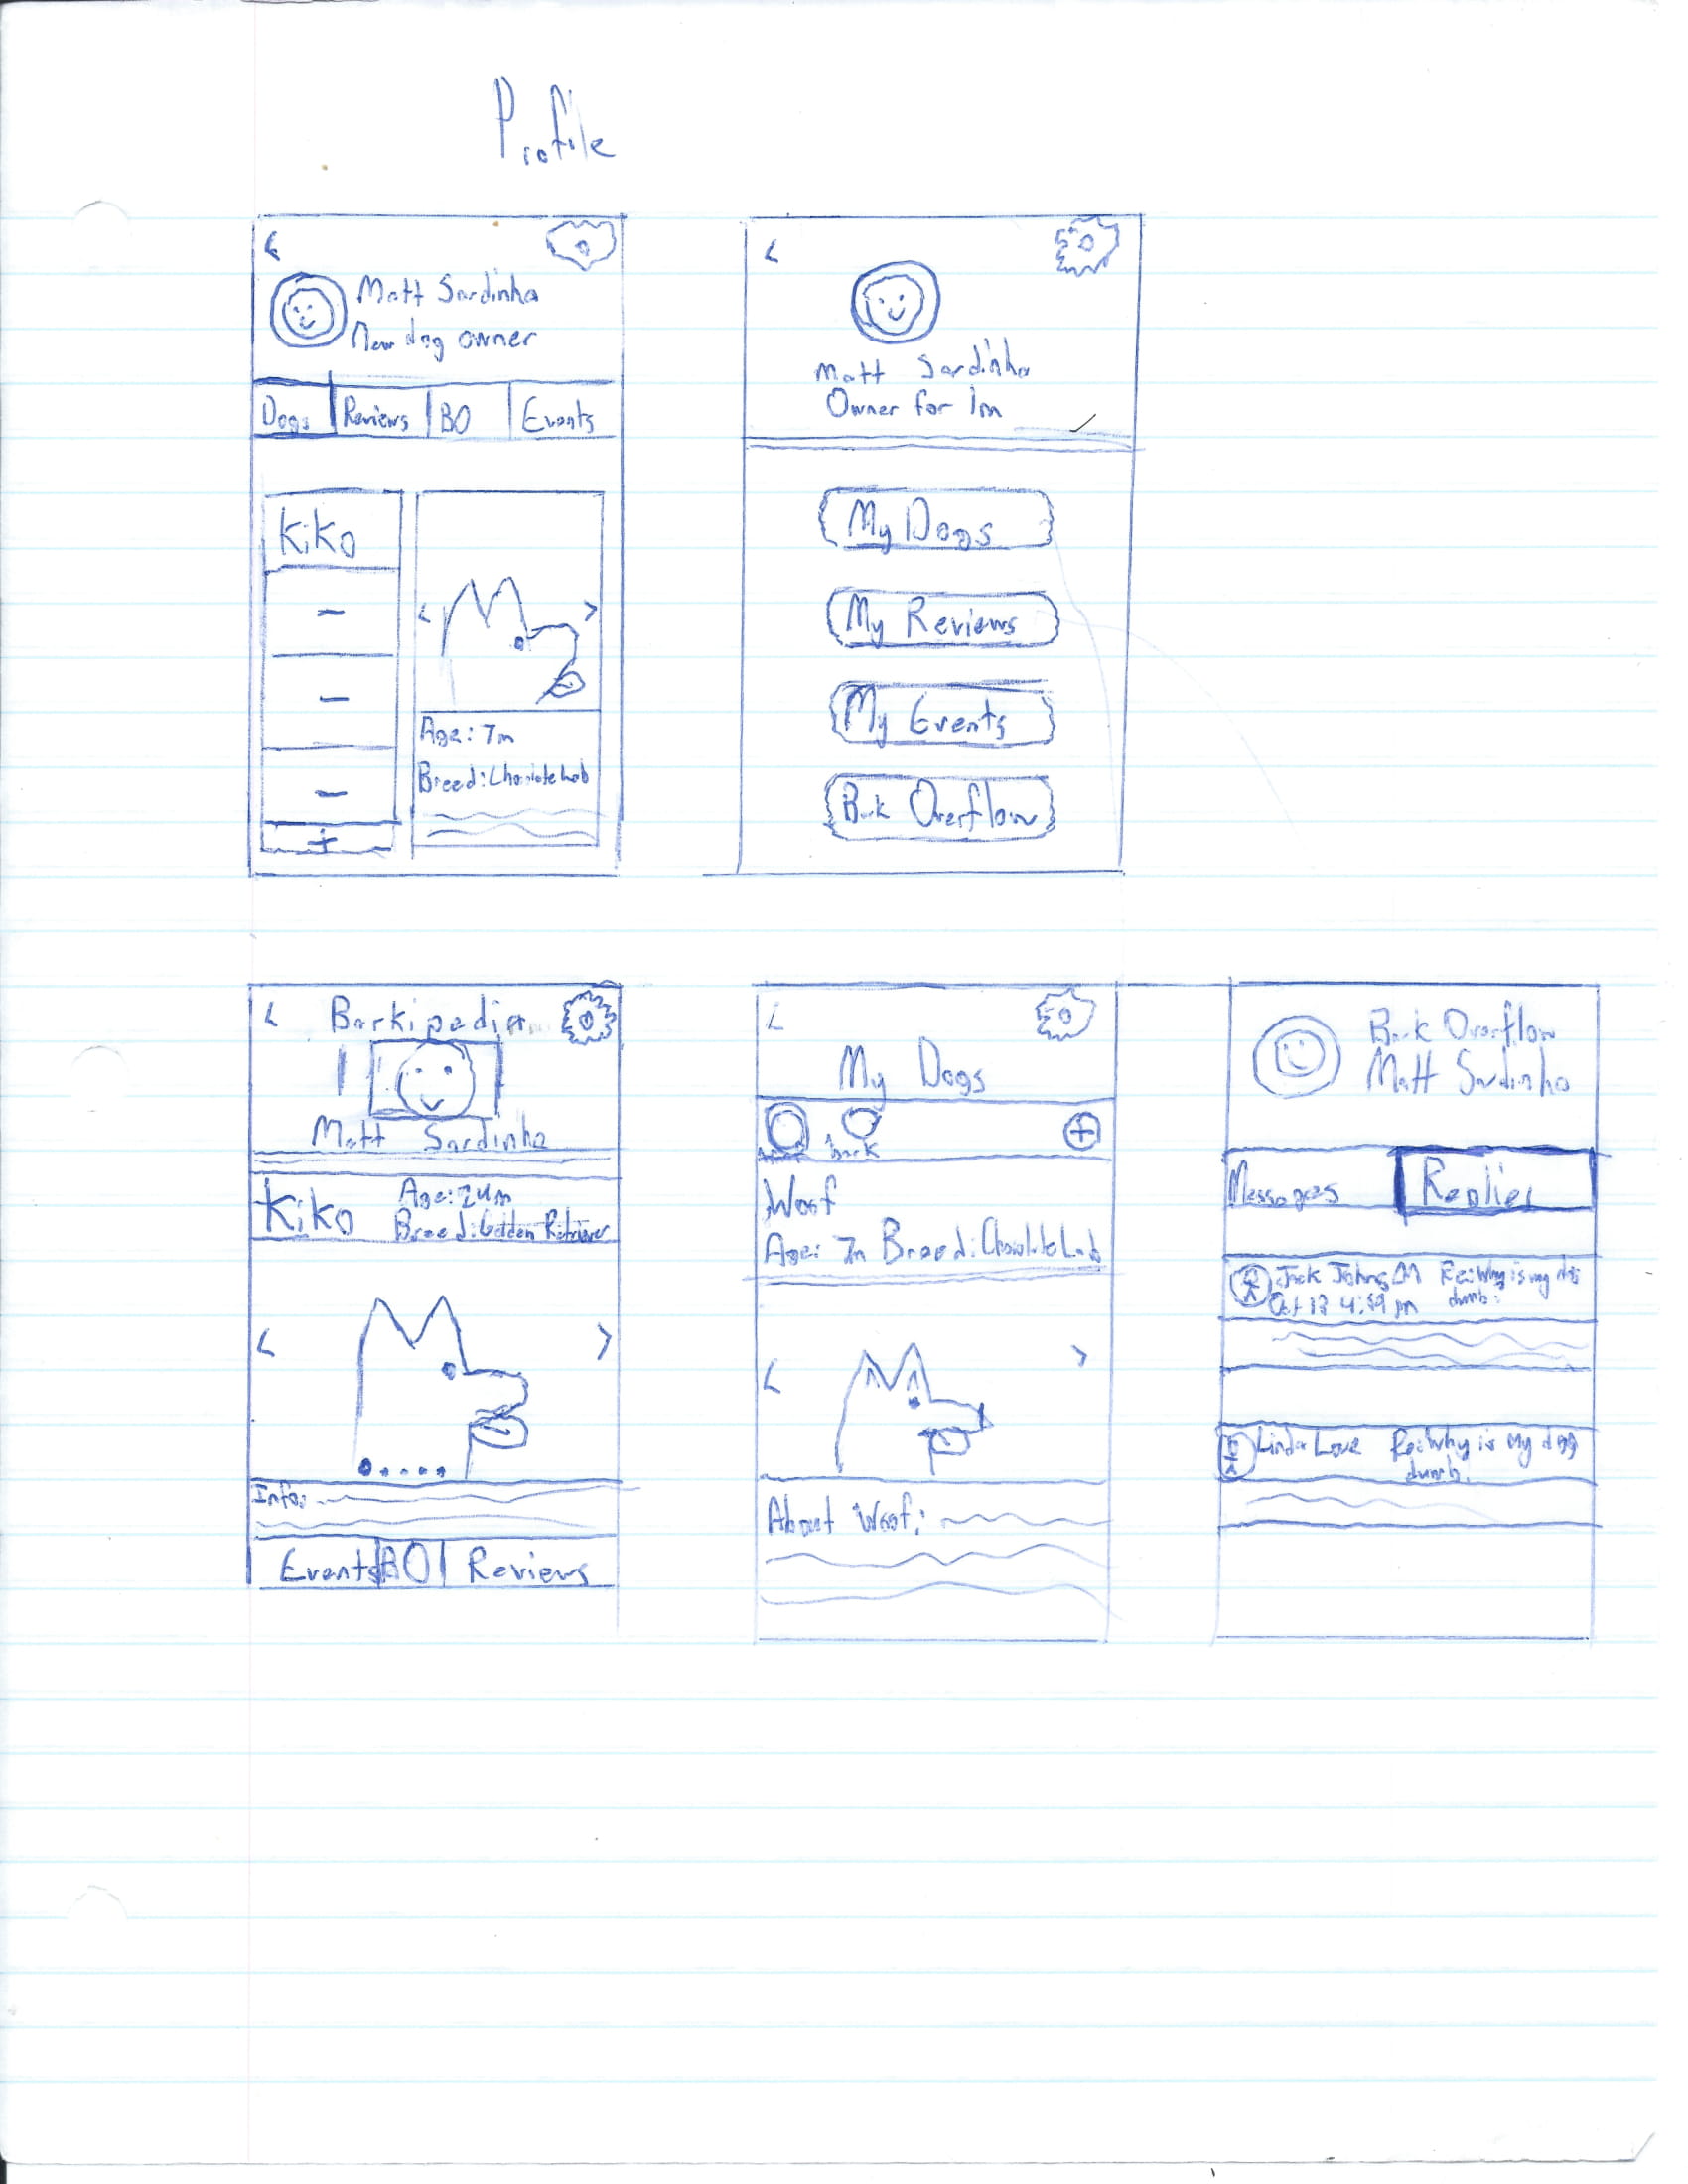 Profile
Matt Sardinha
New dog owner
Dogs Reviews BO Events
Kiko
Age: 7m
Breed: Chocolate Lab
Matt Sardinha
Owner for 1m
My Dogs
My Reviews
My Events
Bark Overflow
Barkipedia
Matt Sardinha
Kiko
Age: 24m
Breed: Golden Retriever
Info:
Events BO Reviews
My Dogs
bark
Woof
Age: 7m Breed: Chocolate Lab
About Woof:
Bark Overflow
Matt Sardinha
Messages Replies
Re: Why is my dog
Oct 13 4:59 pm dumb.
Linda Love Re: Why is my dog
dumb.